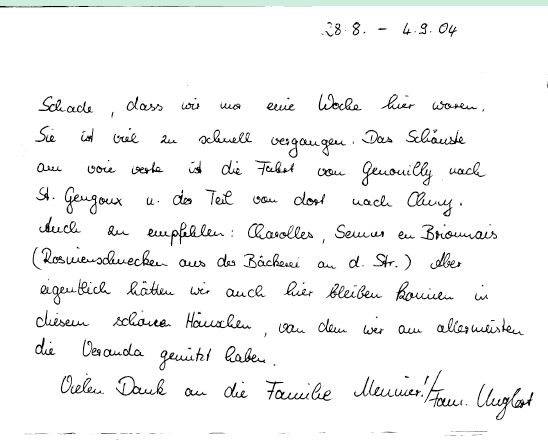 28.8. - 4.9.04
Schade, dass wir nur eine Woche hier waren.
Sie ist viel zu schnell vergangen. Das Schönste
am voie verte ist die Fahrt von Genouilly nach
St. Gengoux u. der Teil von dort nach Cluny.
Auch zu empfehlen: Charolles, Semur en Brionnais
(Rosinenschnecken aus der Bäckerei an d. Str.) Aber
eigentlich hätten wir auch hier bleiben können in
diesem schönen Häuschen, von dem wir am allermeisten
die Veranda genützt haben.
Vielen Dank an die Familie Meunier! / Fam.